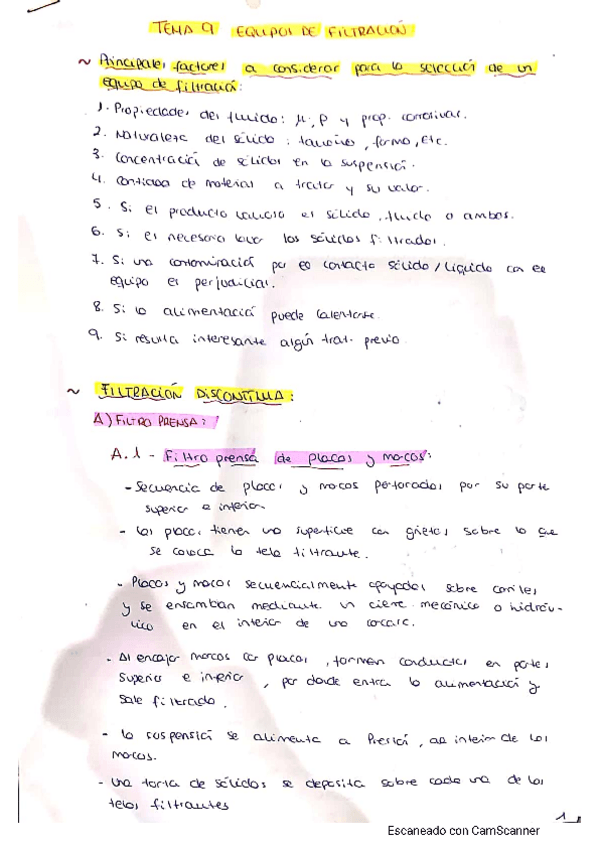 TEMA 9 EQUIPOS DE FILTRACIÓN
~ Principales factores a considerar para la selección de un
equipo de filtración:
1. Propiedades del fluido: μ, ρ y prop. corrosivas.
2. Naturaleza del sólido: tamaño, forma, etc.
3. Concentración de sólidos en la suspensión.
4. Cantidad de material a tratar y su valor.
5. Si el producto valioso es sólido, fluido o ambos.
6. Si es necesario lavar los sólidos filtrados.
7. Si una contaminación por el contacto sólido/líquido con el
equipo es perjudicial.
8. Si la alimentación puede calentarse.
9. Si resulta interesante algún trat. previo.
~ FILTRACIÓN DISCONTINUA:
A) FILTRO PRENSA:
A.1 - Filtro prensa de placas y marcos:
- Secuencia de placas y marcos perforados por su parte
superior e inferior.
- Las placas tienen una superficie con grietas sobre la que
se coloca la tela filtrante.
- Placas y marcos secuencialmente apoyados sobre carriles
y se ensamban mediante un cierre mecánico o hidráu-
lico en el interior de una carcasa.
- Al encajar marcos con placas, forman conductos en partes
superior e inferior, por donde entra la alimentación y
sale filtrado.
- La suspensión se alimenta a presión, al interior de los
marcos.
- Una torta de sólidos se deposita sobre cada una de las
telas filtrantes
1
Escaneado con CamScanner